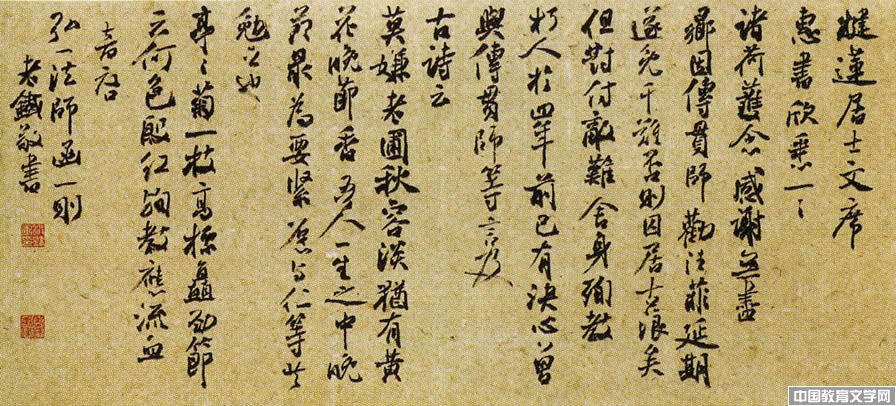 蓮居士文席
惠書欣悉一一
諸荷護念感謝無盡
因傳貫師勸菲延期
遂免于難否則因居古浪矣
但對付敵難舍身殉教
朽人於四年前已有決心曾
與傳貫師等言及
古詩云
莫嫌老圃秋容淡猶有黃
花晚節香吾人一生之中晚
節最為要緊愿与仁等共
勉之也
亭〻菊一枝高標矗勁節
云何色殷紅殉教應流血
音啓
弘一法師函一則
老鐵敬書
中国教育文学网